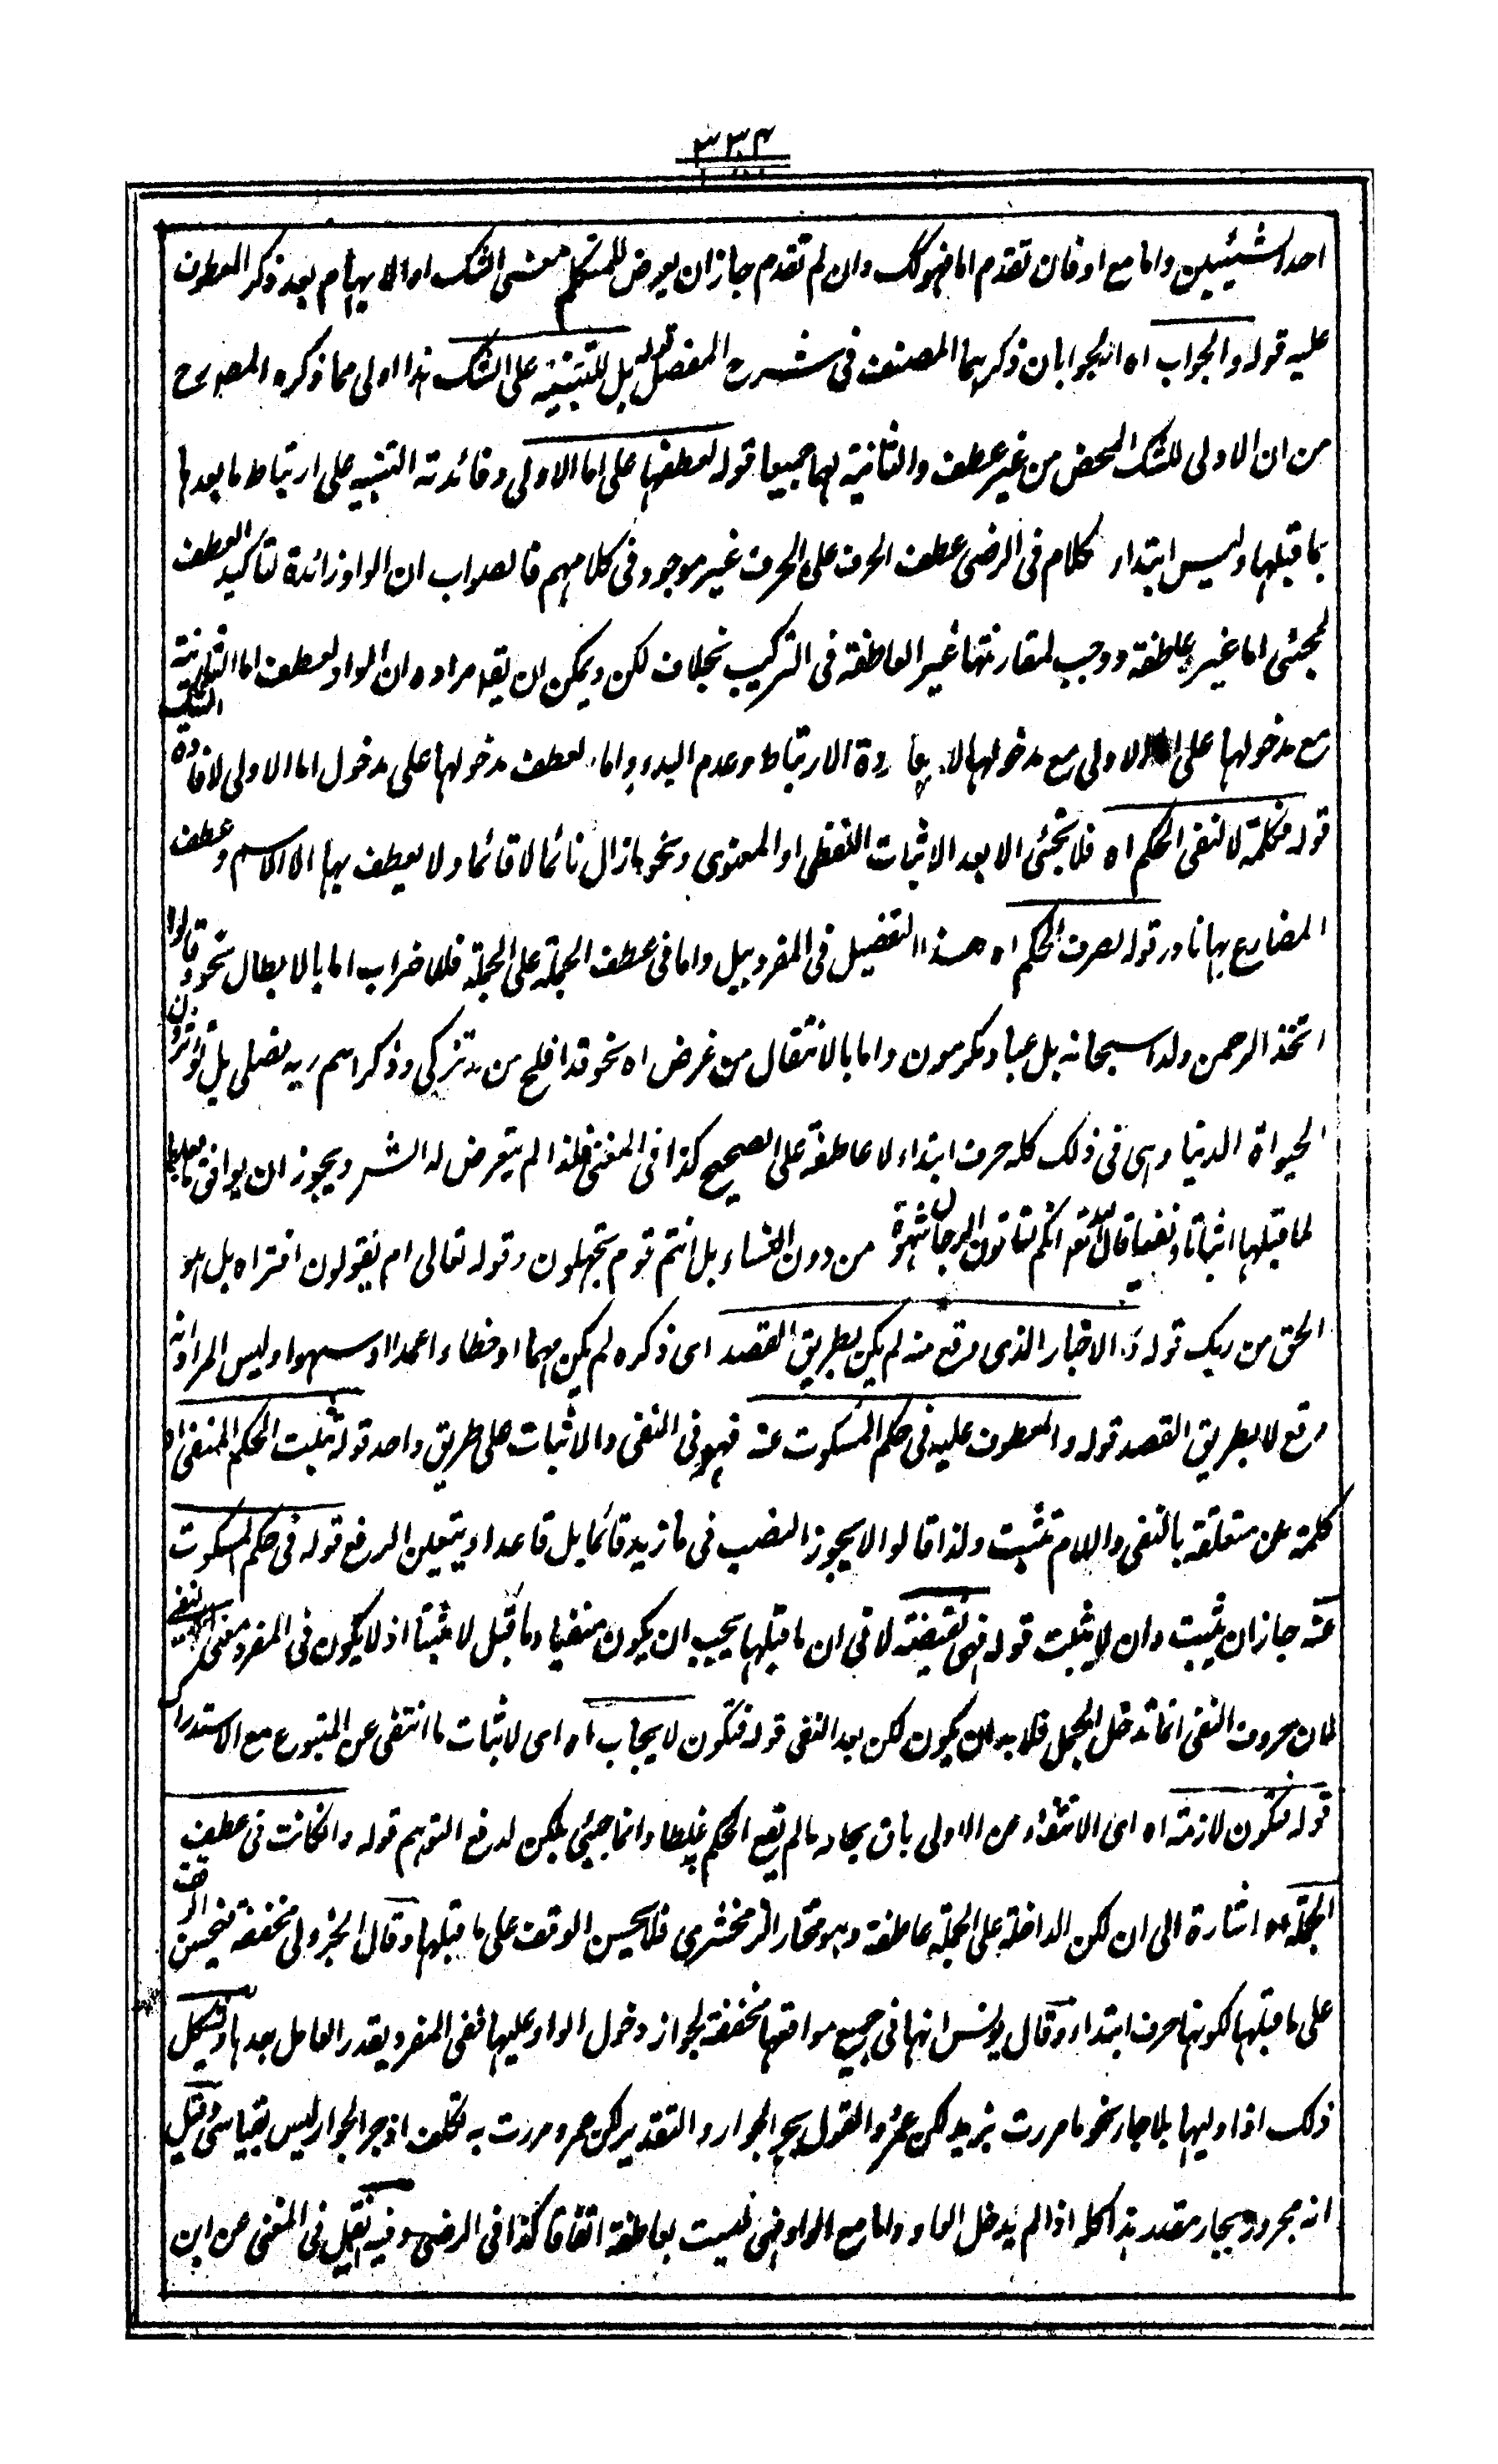 ٣٣٤
احد الشيئين واما مع او فان تقدم اما فهو كك وان لم تقدم جاز ان يعرض للمتكلم معنى الشك او الابهام بعد ذكر المعطوف
عليه قوله والجواب اه الجوابان ذكرهما المصنف فى شرح المفصل قوله بل للتنبيه على الشك هذا اولى مما ذكره المصرح
من ان الاولى للشك المحض من غير عطف والثانية لهما جميعا قوله لعطفها على اما الاولى وفائدته التنبيه على ارتباط ما بعدها
بما قبلها وليس ابتداء كلام فى الرضى عطف الحرف على الحرف غير موجود فى كلامهم فالصواب ان الواو زائدة لتاكيد العطف
لمجئى اما غير عاطفة ووجب لمقارنتها غير العاطفة فى التركيب بخلاف لكن ويمكن ان يقه مراده ان الواو لعطف اما الثانية
مع مدخولها على اما الاولى مع مدخولها لافادة الارتباط وعدم البدء واما لعطف مدخولها على مدخول اما الاولى لافادة الشك
قوله فكلمة لا لنفى الحكم اه فلا تجئى الا بعد الاثبات اللفظى او المعنوى ونحو ما زال نائما لا قائما ولا يعطف بها الا الاسم وعطف
المضارع بها نادر قوله لصرف الحكم اه هذا التفصيل فى المفرد ببل واما فى عطف الجملة على الجملة فللاضراب اما بالابطال نحو وقالوا
اتخذ الرحمن ولدا سبحانه بل عباد مكرمون واما بالانتقال من غرض اه نحو قد افلح من تزكى وذكر اسم ربه فصلى بل تؤثرون
الحيواة الدنيا وهى فى ذلك كله حرف ابتداء لا عاطفة على الصحيح كذا فى المغنى فلذا لم يتعرض له الشر ويجوز ان يوافق ما بعدها
لما قبلها اثباتا ونفيا قال الله تع ائنكم لتاتون الرجال شهوة من دون النساء بل انتم قوم تجهلون وقوله تعالى ام يقولون افتراه بل هو
الحق من ربك قوله الاخبار الذى وقع منه لم يكن بطريق القصد اى ذكره لم يكن مهما او خطاء اعمدا او سهوا وليس المراد انه
وقع لا بطريق القصد قوله والمعطوف عليه فى حكم المسكوت عنه فهو فى النفى والاثبات على طريق واحد قوله ثبت الحكم المنفى اه
كلمة عن متعلقة بالنفى واللام تثبت ولذا قالوا لا يجوز النصب فى ما زيد قائما بل قاعدا ويتعين الرفع قوله فى حكم المسكوت
عنه جاز ان يثبت وان لا يثبت قوله فهى نقيضة لا فى ان ما قبلها يجب ان يكون منفيا وما قبل لا مثبتا اذ لا يكون فى المفرد معنى النفى
لان حروف النفى انما تدخل الجمل فلا بد ان يكون لكن بعد النفى قوله فتكون لايجاب اه اى لاثبات ما انتفى عن المتبوع مع الاستدراك
قوله فتكون لازمة اه اى الانتفاء عن الاولى باق بحاله ما لم يقع الحكم غلطا وانما جيئى بلكن لدفع التوهم قوله وان كانت فى عطف
الجملة اه اشارة الى ان لكن الداخلة على الجملة عاطفة وهو مختار الزمخشرى فلا يحسن الوقف على ما قبلها وقال الجزولى مخففة فيحسن الوقف
على ما قبلها لكونها حرف ابتداء وقال يونس انها فى جميع مواقعها مخففة لجواز دخول الواو عليها ففى المفرد يقدر العامل بعدها ويشكل
ذلك اذا وليها بلا جار نحو ما مررت بزيد لكن عمرو والقول بجر الجوار والتقدير لكن عمرو مررت به تكلف اذ جر الجوار ليس بقياسى وقيل
انه مجرور بجار مقدر هذا كله اذا لم يدخل الواو واما مع الواو فهى ليست بعاطفة اتفاقا كذا فى الرضى وفيه نقل فى المغنى عن ابن